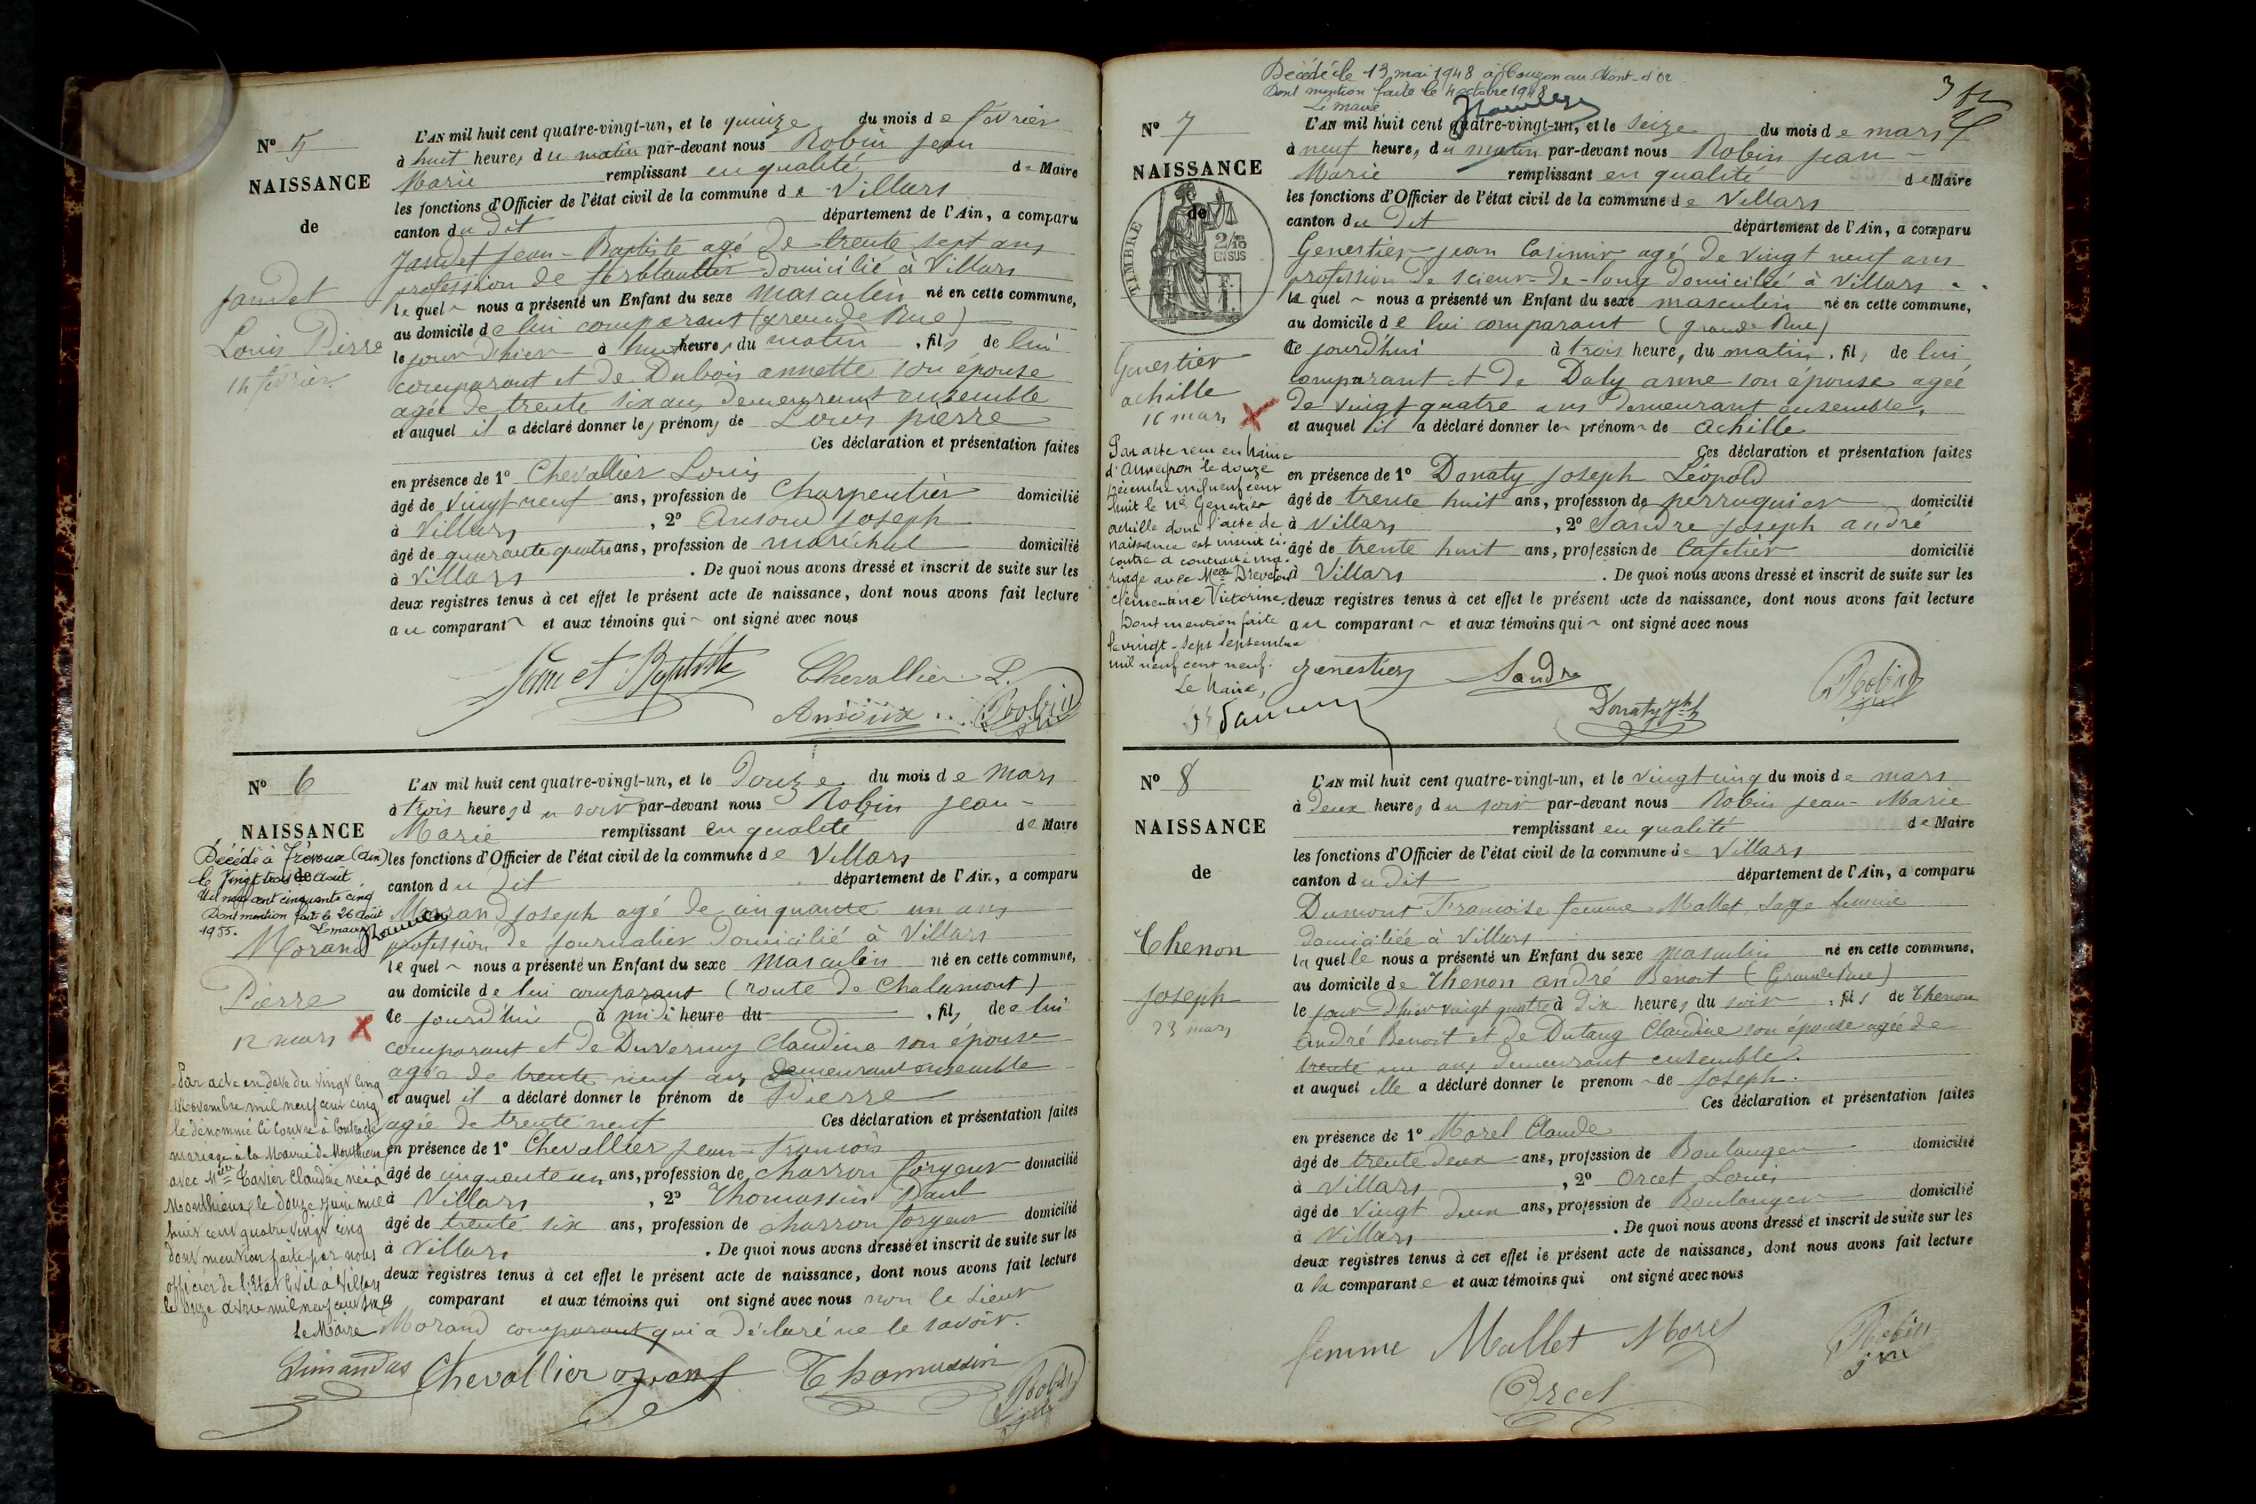 N° 5
NAISSANCE
de
Jandet
Louis Pierre
14 février
L'AN mil huit cent quatre-vingt-un, et le quinze du mois de février
à huit heures du matin par-devant nous Robin Jean
Marie remplissant en qualité de Maire
les fonctions d'Officier de l'état civil de la commune de Villars
canton du dit département de l'Ain, a comparu
Jandet Jean-Baptiste agé de trente sept ans
profession de ferblantier domicilié à Villars
lequel nous a présenté un Enfant du sexe masculin né en cette commune,
au domicile de lui comparant (grande Rue)
le jour d'hier à huit heures du matin, fils de lui
comparant et de Dubois annette son épouse
agée de trente six ans demeurant ensemble
et auquel il a déclaré donner les prénoms de Louis pierre
Ces déclaration et présentation faites
en présence de 1° Chevallier Louis
âgé de vingt neuf ans, profession de Charpentier domicilié
à Villars, 2° joseph
âgé de quarante quatre ans, profession de maréchal domicilié
à Villars. De quoi nous avons dressé et inscrit de suite sur les
deux registres tenus à cet effet le présent acte de naissance, dont nous avons fait lecture
au comparant et aux témoins qui ont signé avec nous
Baptiste Chevallier L.
Robin
N° 6
NAISSANCE
de
Décédé à Trévoux (Ain)
le vingt trois Août
mil neuf cent cinquante cinq
Dont mention faite le 26 Août
1955. Le maire
Morand
Pierre
12 mars X
Par acte en date du vingt cinq
Novembre mil neuf cent cinq
le dénommé ci contre a contracté
mariage à la Mairie de Monthieux
avec Mlle Tavier Claudine née à
Monthieux le douze juin mil
huit cent quatre vingt cinq
dont mention faite par nous
officier de l'Etat Civil à Villars
Le Maire
L'AN mil huit cent quatre-vingt-un, et le Douze du mois de Mars
à trois heures du soir par-devant nous Robin Jean-
Marie remplissant en qualité de Maire
les fonctions d'Officier de l'état civil de la commune de Villars
canton du dit département de l'Ain, a comparu
Morand joseph agé de cinquante un ans
profession de journalier domicilié à Villars
lequel nous a présenté un Enfant du sexe masculin né en cette commune,
au domicile de lui comparant (route de Chalamont)
le jourd'hui à midi heure du , fils de lui
comparant et de Duvernay Claudine son épouse
agée de trente neuf ans demeurant ensemble
et auquel il a déclaré donner le prénom de Pierre
agée de trente neuf Ces déclaration et présentation faites
en présence de 1° Chevallier Jean-François
âgé de cinquante un ans, profession de charron forgeur domicilié
à Villars, 2° Thomassin Paul
âgé de trente six ans, profession de charron forgeur domicilié
à Villars. De quoi nous avons dressé et inscrit de suite sur les
deux registres tenus à cet effet le présent acte de naissance, dont nous avons fait lecture
a comparant et aux témoins qui ont signé avec nous non le sieur
Morand comparant qui a déclaré ne le savoir.
Chevallier Thomassin Robin
Décédé le 13 mai 1948 à Couzon au Mont-d'Or
Dont mention faite le 4 octobre 1948
Le maire
N° 7
NAISSANCE
de
TIMBRE
2/10
EN SUS
Genestier
achille
16 mars X
Par acte reçu en Mairie
le douze
Décembre mil neuf cent
huit le né Genestier
achille dont l'acte de
naissance est inscrit ci-
contre a contracté ma-
riage avec Melle
Clémentine Victorine.
Dont mention faite
le vingt-sept septembre
mil neuf cent neuf.
Le Maire,
L'AN mil huit cent quatre-vingt-un, et le seize du mois de mars
à neuf heures du matin par-devant nous Robin Jean-
Marie remplissant en qualité de Maire
les fonctions d'Officier de l'état civil de la commune de Villars
canton du dit département de l'Ain, a comparu
Genestier jean Casimir agé de vingt neuf ans
profession de scieur-de-long domicilié à Villars
lequel nous a présenté un Enfant du sexe masculin né en cette commune,
au domicile de lui comparant (grande Rue)
le jourd'hui à trois heures du matin, fils de lui
comparant et de Daly anne son épouse agée
de vingt quatre ans demeurant ensemble,
et auquel il a déclaré donner le prénom de achille
Ces déclaration et présentation faites
en présence de 1° Donaty Joseph Léopold
âgé de trente huit ans, profession de perruquier domicilié
à Villars, 2° Sandre joseph andré
âgé de trente huit ans, profession de Cafetier domicilié
à Villars. De quoi nous avons dressé et inscrit de suite sur les
deux registres tenus à cet effet le présent acte de naissance, dont nous avons fait lecture
au comparant et aux témoins qui ont signé avec nous
genestier Sandre
Donaty Robin
N° 8
NAISSANCE
de
Thenon
joseph
23 mars
L'AN mil huit cent quatre-vingt-un, et le vingt cinq du mois de mars
à deux heures du soir par-devant nous Robin Jean-Marie
remplissant en qualité de Maire
les fonctions d'Officier de l'état civil de la commune de Villars
canton du dit département de l'Ain, a comparu
Dumont Francoise femme Mallet, sage femme
domiciliée à Villars
laquelle nous a présenté un Enfant du sexe masculin né en cette commune,
au domicile de Thenon andré Benoit (Grande Rue)
le jour d'hier vingt quatre à dix heures du soir, fils de Thenon
andré Benoit et de Dutang Claudine son épouse agée de
trente un ans demeurant ensemble.
et auquel elle a déclaré donner le prenom de joseph.
Ces déclaration et présentation faites
en présence de 1° Morel Claude
âgé de trente deux ans, profession de Boulanger domicilié
à Villars, 2° Orcet Louis
âgé de vingt deux ans, profession de Boulanger domicilié
à Villars. De quoi nous avons dressé et inscrit de suite sur les
deux registres tenus à cet effet le présent acte de naissance, dont nous avons fait lecture
a la comparante et aux témoins qui ont signé avec nous
femme Mallet Morel Robin
Orcet